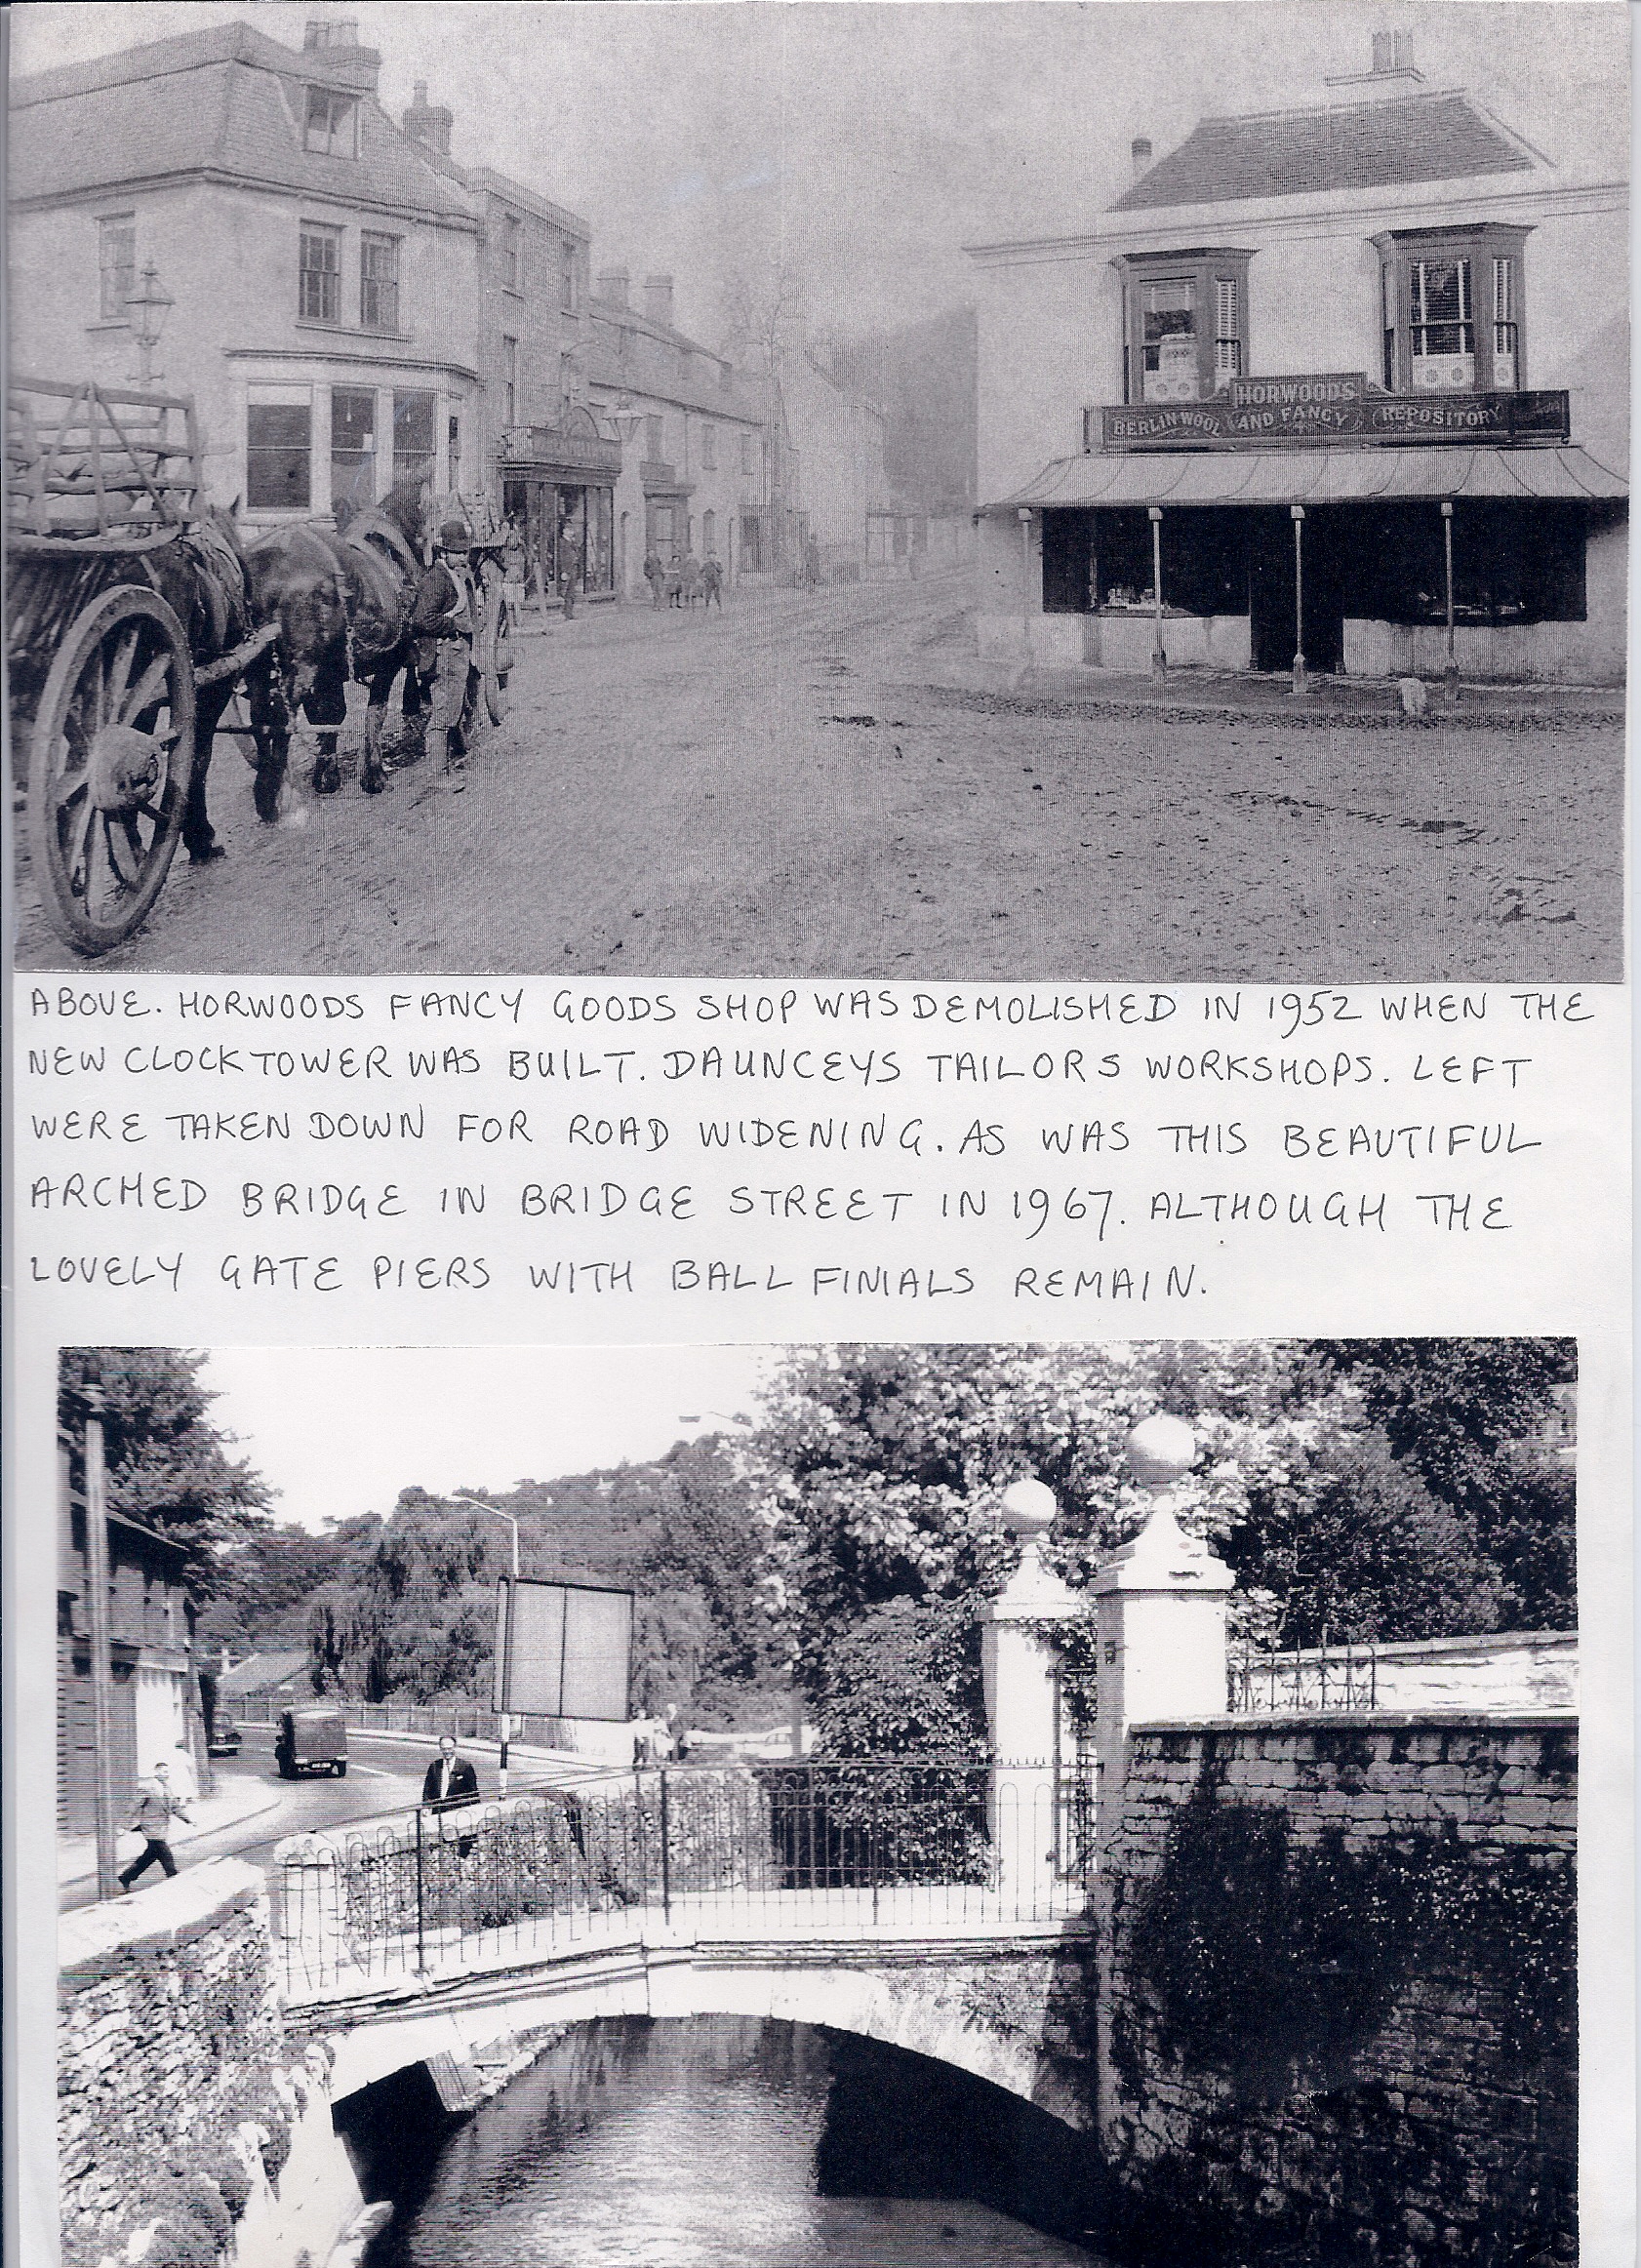 HORWOOD'S
BERLIN WOOL AND FANCY REPOSITORY
ABOVE. HORWOODS FANCY GOODS SHOP WAS DEMOLISHED IN 1952 WHEN THE
NEW CLOCK TOWER WAS BUILT. DAUNCEYS TAILORS WORKSHOPS. LEFT
WERE TAKEN DOWN FOR ROAD WIDENING. AS WAS THIS BEAUTIFUL
ARCHED BRIDGE IN BRIDGE STREET IN 1967. ALTHOUGH THE
LOVELY GATE PIERS WITH BALL FINIALS REMAIN.